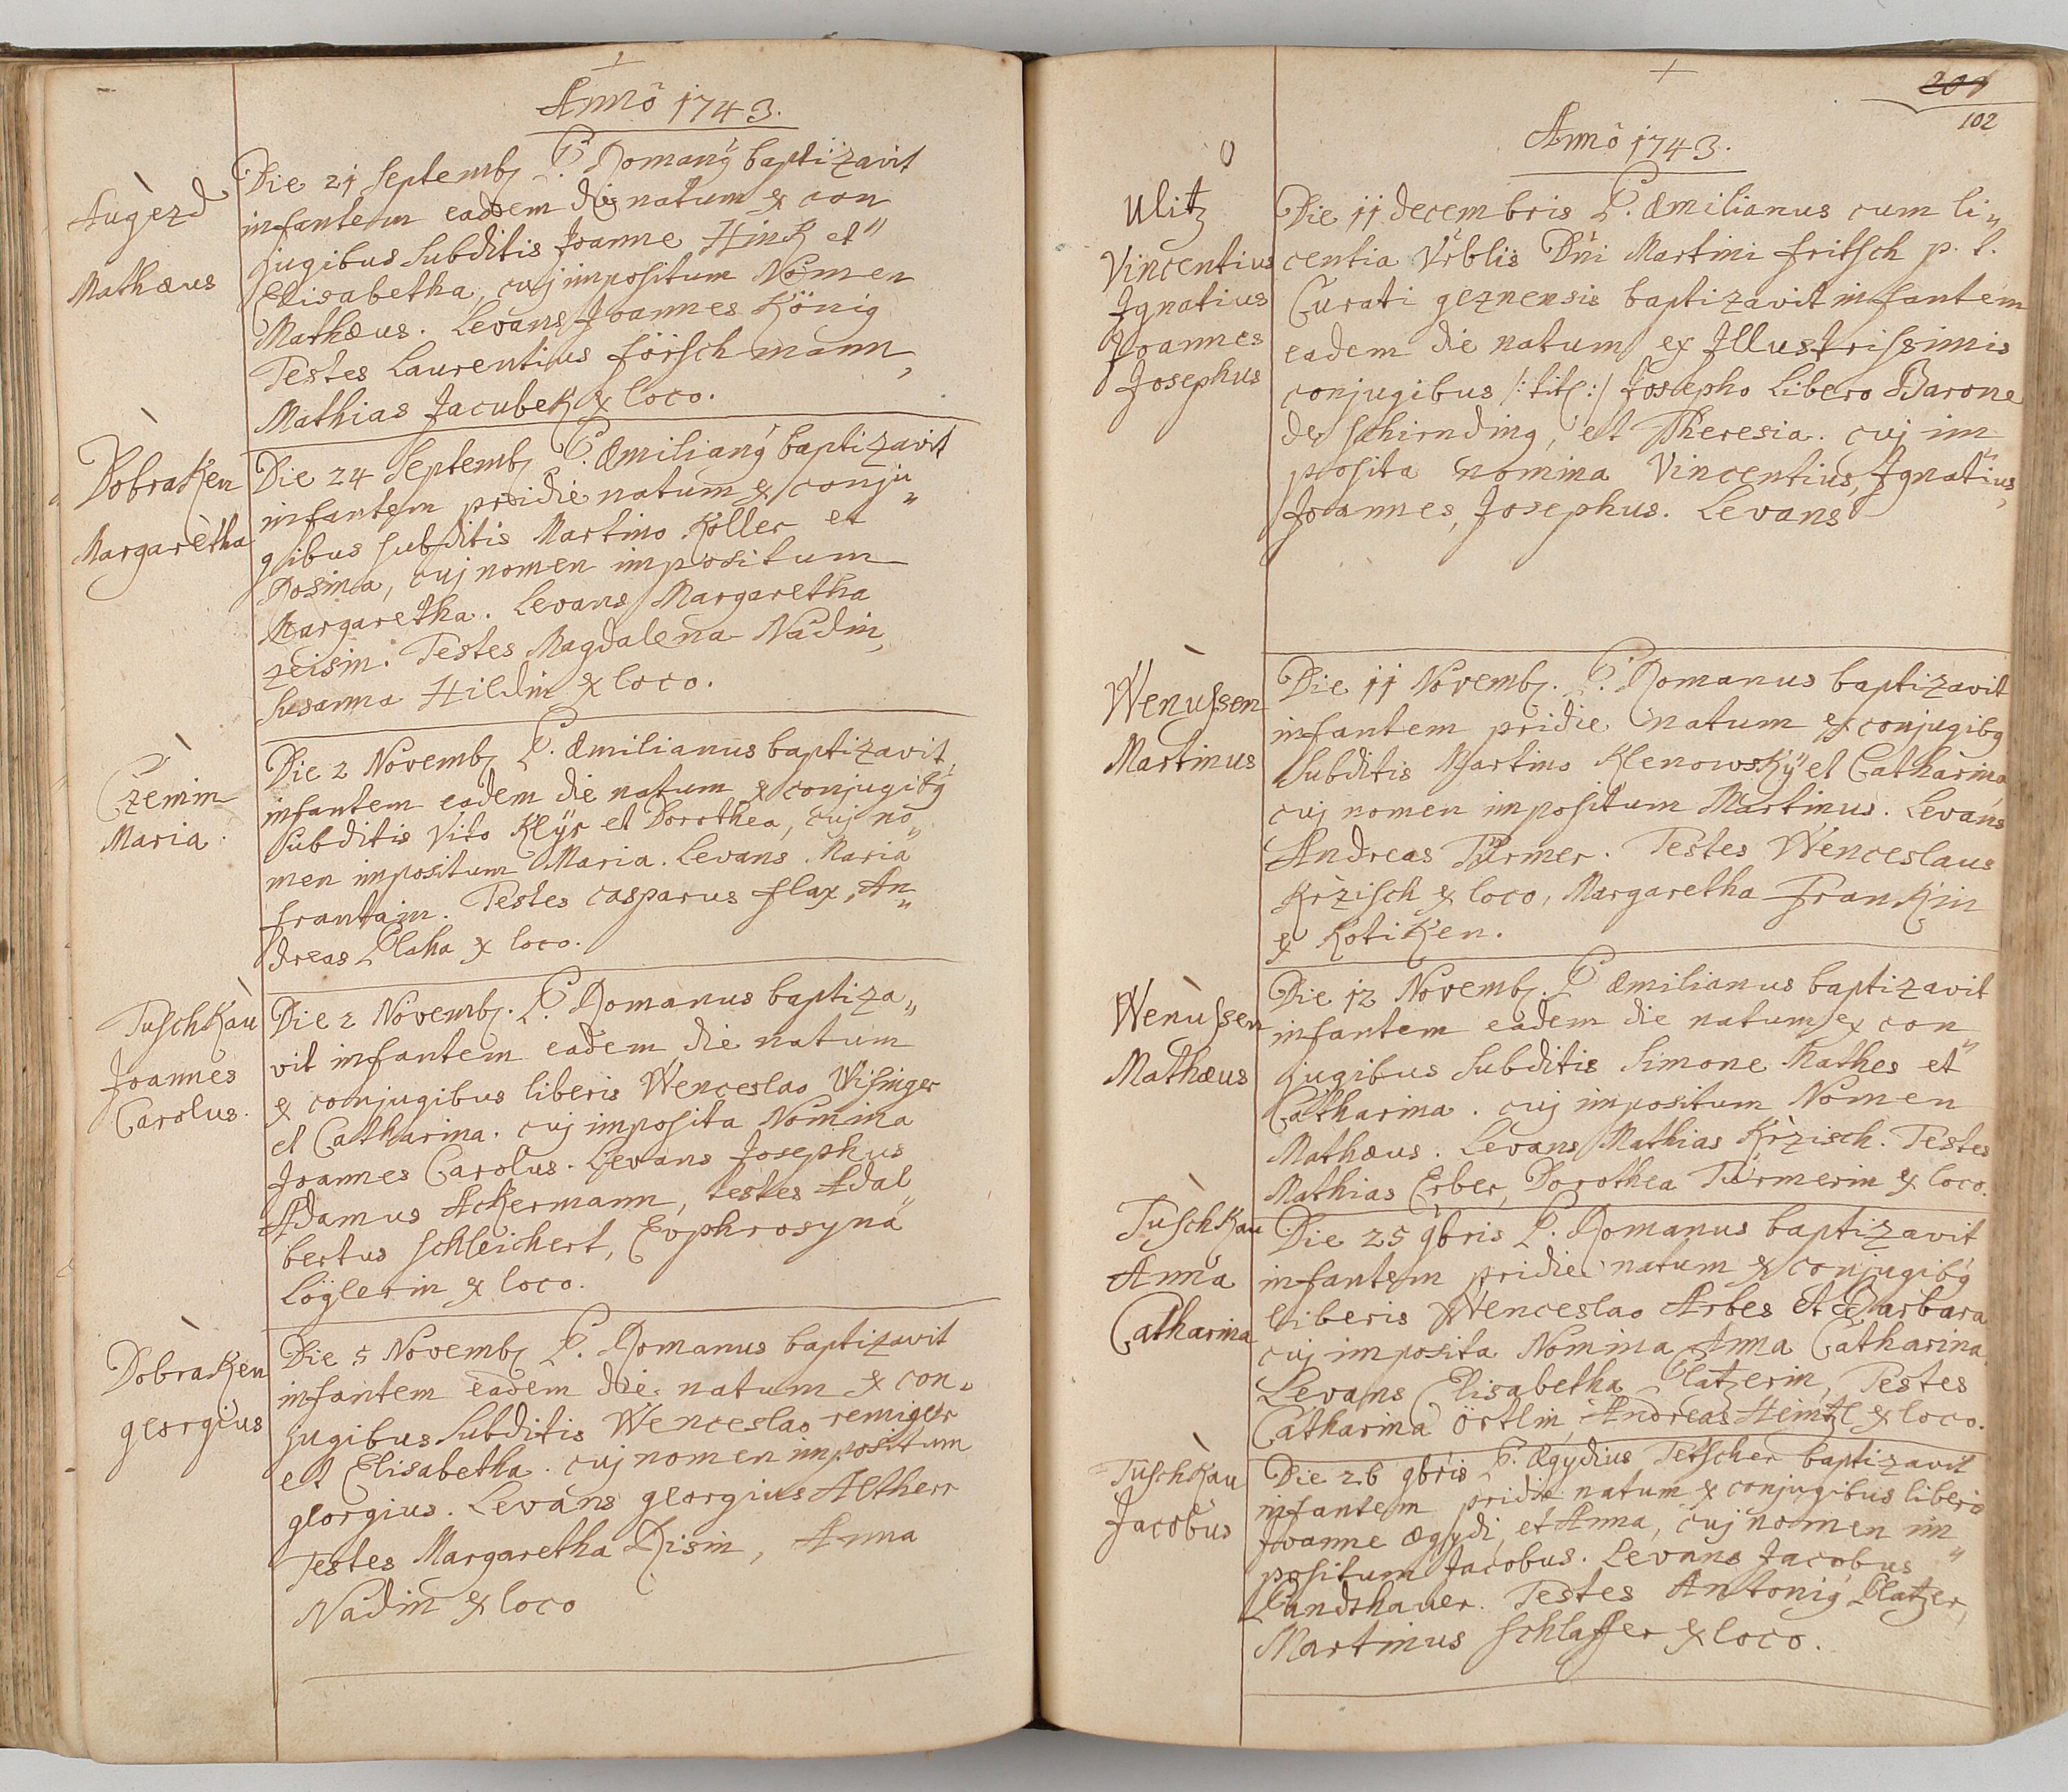 Anno 1743.
Augezd
Mathæus
Die 21 Septemb. P. Romanȝ baptizavit
infantem eadem die natum ex con
jugibus subditis Joanne Hink et
Elisabetha, cuj impositum Nomen
Mathæus. Levans Joannes König
Testes Laurentius försch mann,
Mathias Jacubek ex loco.
Dobraken
Margaretha
Die 24 Septemb. P. Æmilianȝ baptizavit
infantem pridie natum ex conju„
gibus subditis Martino Koller et
Rosina, cuj nomen impositum
Margaretha. Levans Margaretha
zeisin. Testes Magdalena Nadin,
Susanna Hildin ex loco.
Czemin
Maria.
Die 2 Novemb. P. Æmilianus baptizavit
infantem eadem die natum ex conjugibȝ
subditis Vito Klÿr et Dorothea, cuj no„
men impositum Maria. Levans Maria
frantain. Testes Casparus flax, An„
dreas Plaha ex loco.
Tuschkau
Joannes
Carolus.
Die 2 Novemb. P. Romanus baptiza„
vit infantem eadem die natum
ex conjugibus liberis Wenceslao Wisinger
et Catharina. cuj imposita Nomina
Joannes Carolus. Levans Josephus
Adamus Ackermann, testes Adal„
bertus schleichert, Euphrosyna
Löglerin ex loco.
Dobraken
georgius
Die 5 Novemb. P. Romanus baptizavit
infantem eadem die natum ex con„
jugibus subditis Wenceslao remiger
et Elisabetha. cuj nomen impositum
georgius. Levans georgius Altherr
Testes Margaretha Risin, Anna
Nadin ex loco
201
102
Anno 1743.
Ulitz
Vincentius
Ignatius
Joannes
Josephus
Die 11 decembris P. Æmilianus cum li„
centia Vrblis Dni Martini fritsch p. t.
Curati geznensis baptizavit infantem
eadem die natum ex Illustrissimis
conjugibus /: tit: :/ Josepho Libero Barone
de schirnding, et Theresia. cuj im„
posita nomina Vincentius, Ignatius,
Joannes, Josephus. Levans
Wenussen
Martinus
Die 11 Novemb. P. Romanus baptizavit
infantem pridie natum ex conjugibȝ
subditis Martino Klenowskÿ et Catharina
cuj nomen impositum Martinus. Levans
Andreas Türmer. Testes Wenceslaus
Krzisch ex loco, Margaretha Frankin
ex Kotiken.
Wenussen
Mathæus
Die 12 Novemb. P. Æmilianus baptizavit
infantem eadem die natum ex con„
jugibus subditis Simone Mathes et
Catharina. cuj impositum Nomen
Mathæus. Levans Mathias Krzisch. Testes
Mathias Erber, Dorothea Türmerin ex loco.
Tuschkau
Anna
Catharina
Die 25 9bris P. Romanus baptizavit
infantem pridie natum ex conjugibȝ
liberis Wenceslao Arbes et Barbara
cuj imposita Nomina Anna Catharina.
Levans Elisabetha Platzerin, Testes
Catharina örtlin, Andreas Heintzl ex loco.
Tuschkau
Jacobus
Die 26 9bris P. Ægydius Tetscher baptizavit
infantem pridie natum ex conjugibus liberis
Joanne ægydi, et Anna, cuj nomen im„
positum Jacobus. Levans Jacobus
Landthauer. Testes Antoniȝ Platzer,
Martinus schlaffer ex loco.